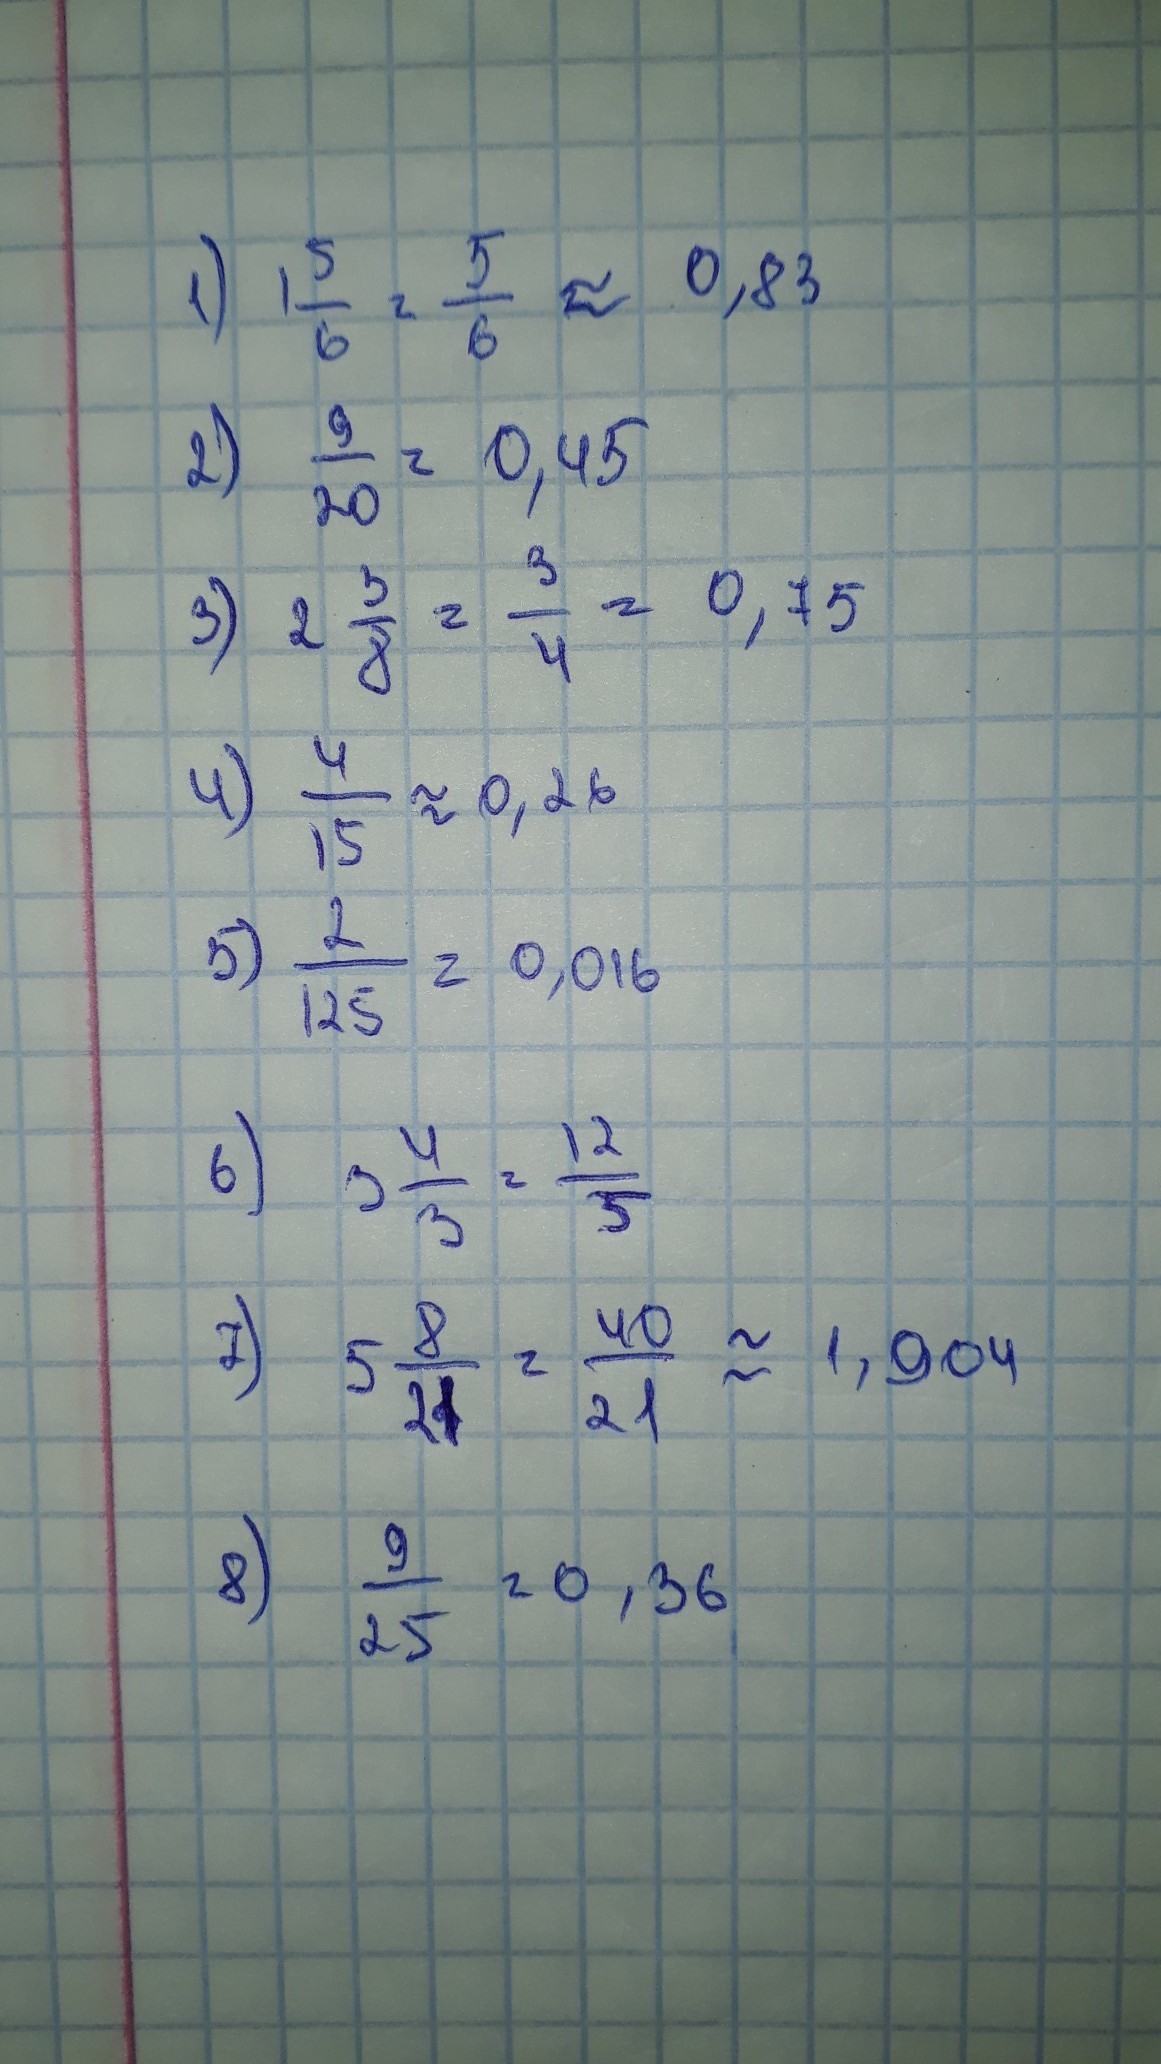 1) 1 5/6 = 5/6 ≈ 0,83
2) 9/20 = 0,45
3) 2 3/8 = 3/4 = 0,75
4) 4/15 ≈ 0,26
5) 2/125 = 0,016
6) 3 4/3 = 12/5
7) 5 8/21 = 40/21 ≈ 1,904
8) 9/25 = 0,36